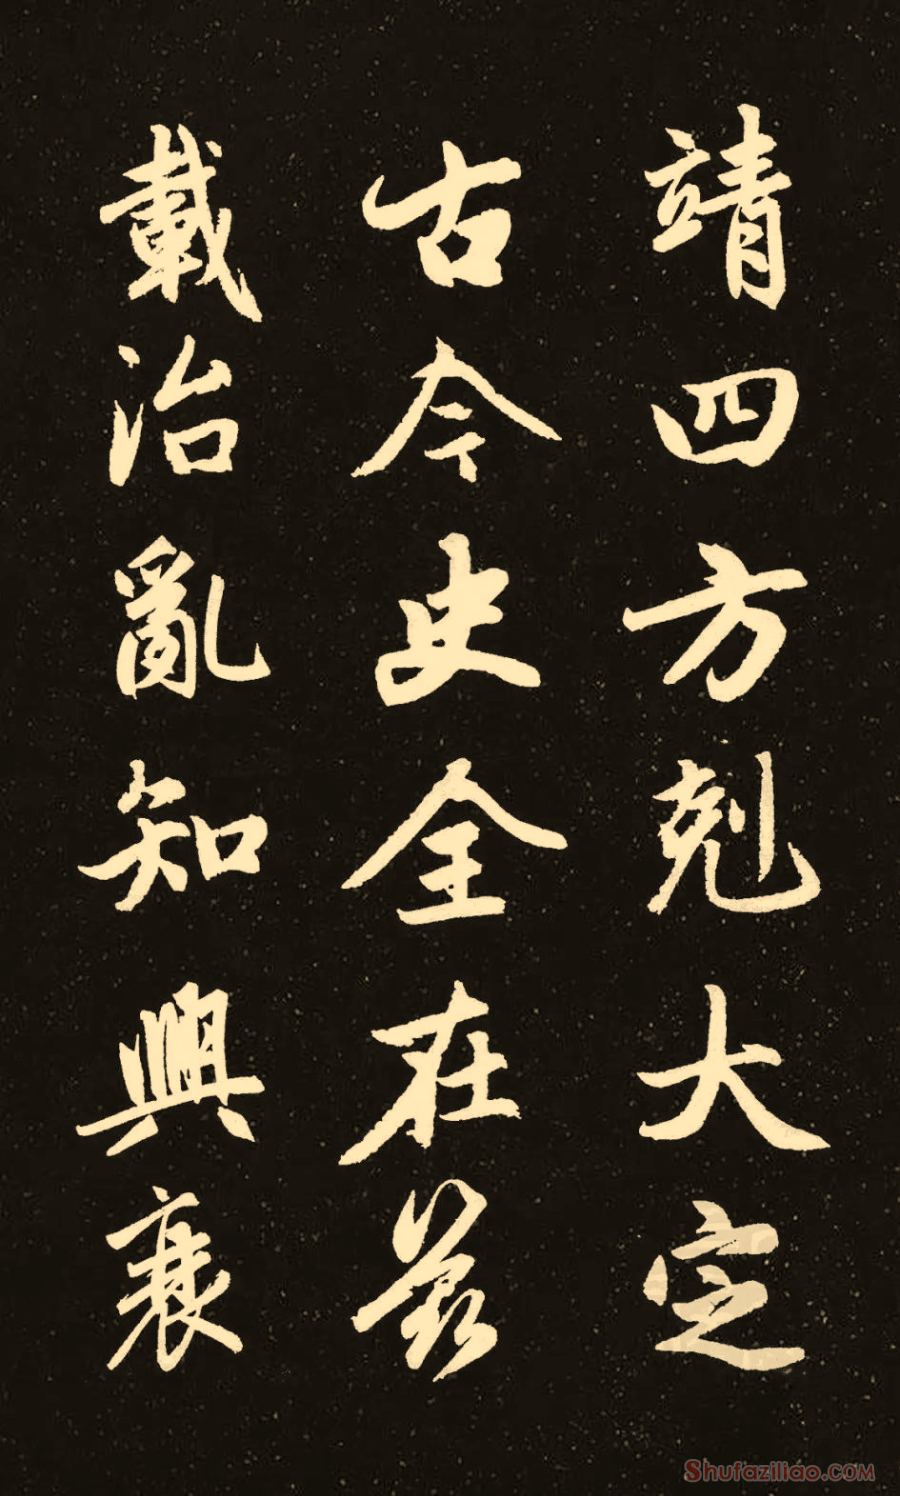 靖四方剋大定
古今史全在兹
載治亂知興衰
Shufaziliao.COM